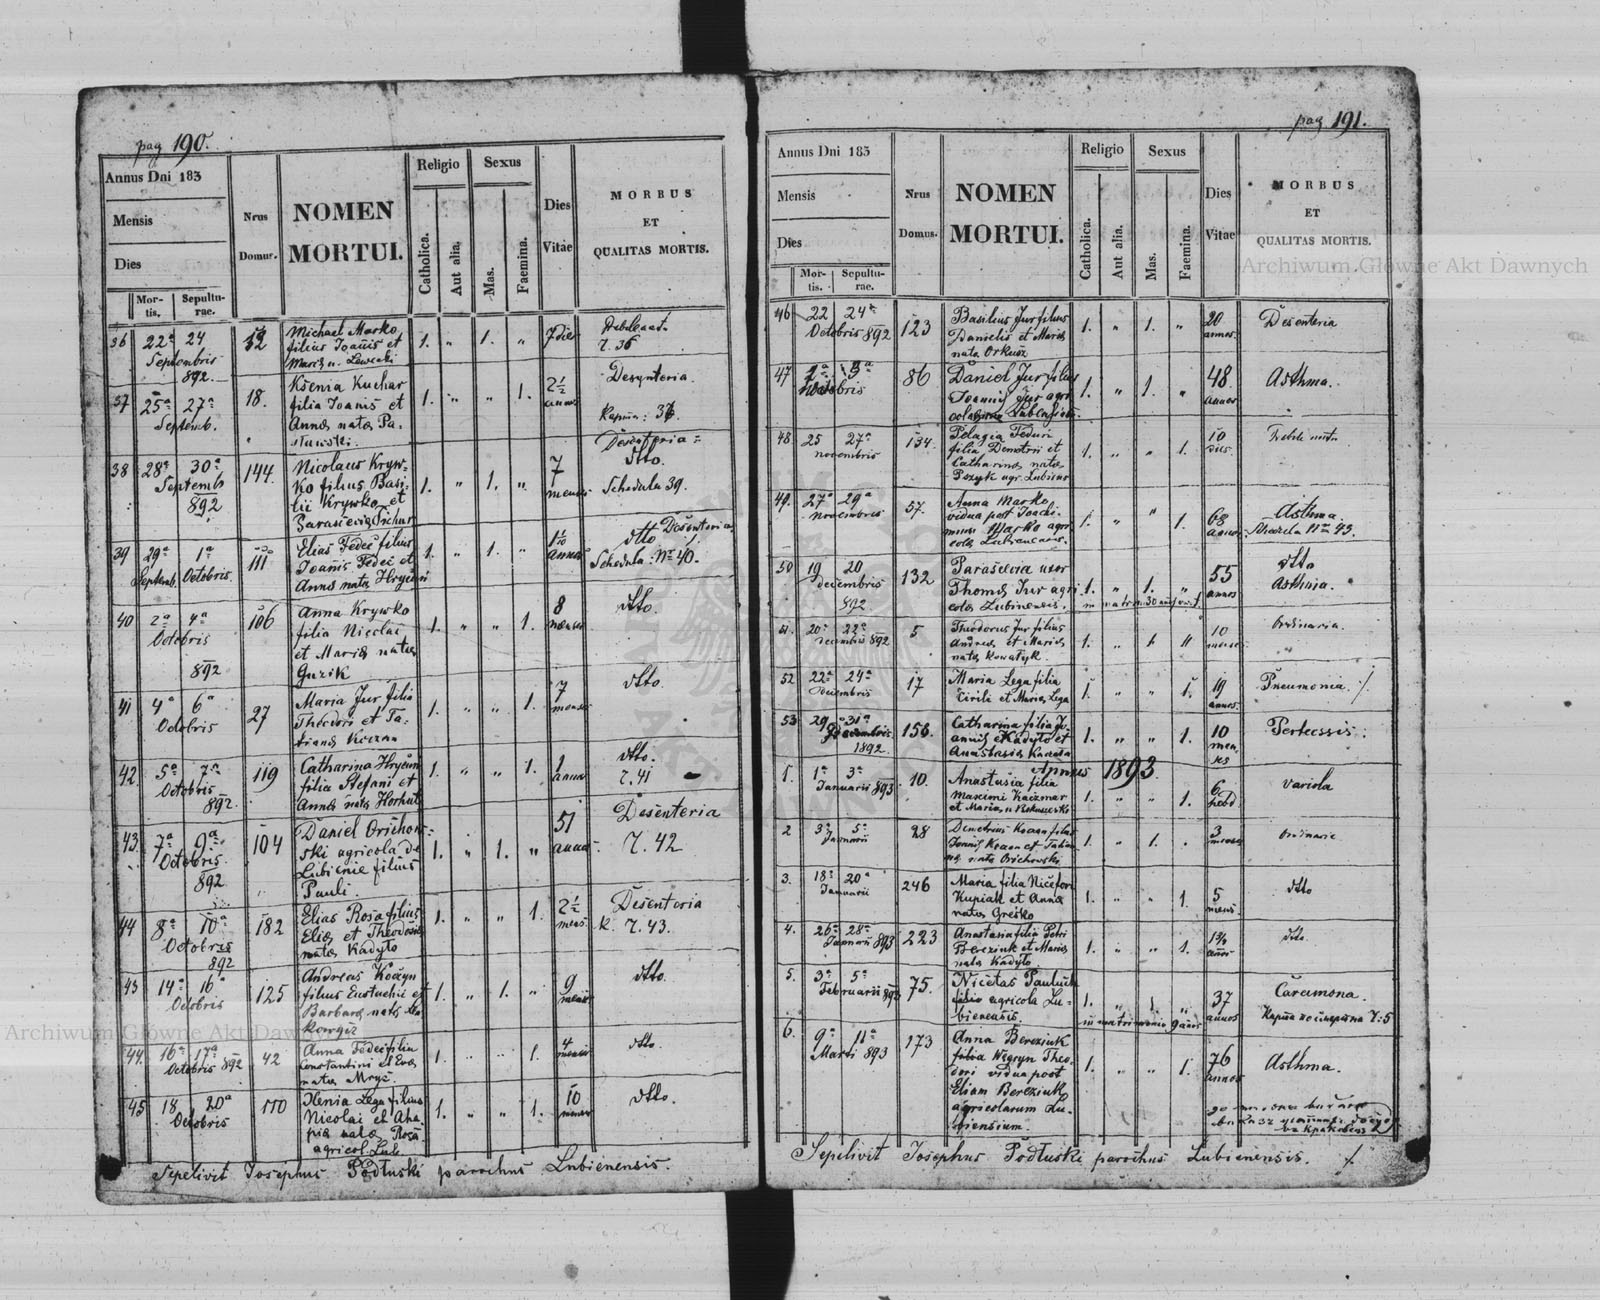 pag 190.
Annus Dni 183
Mensis
Dies
Mor-
tis.
Sepultu-
rae.
Nrus
Domus.
NOMEN
MORTUI.
Religio
Catholica.
Aut alia.
Sexus
Mas.
Faemina.
Dies
Vitae
MORBUS
ET
QUALITAS MORTIS.
36 22a 24 Septembris 892.
Michael Marko
filius Joannis et
1. " 1. " 7 dies
37 25a 27a Septemb.
18.
Ksenia Kuchar
filia Joannis et
Anna nata Pa-
1. " " 1. 2 1/2 annos
Desynteria.
38 28a 30a Septemb 892
144.
Nicolaus Kryw-
ko filius Basi-
lii Krywko et
1. " 1. " 7 menses
dtto.
Schedula 39.
39 29a 1a Septemb. Octobris
111
Elias Fedec filius
Joannis Fedec et
Anna nata Hrycun
1. " 1. "
dtto Desenteria
Schedula Nr 40.
40 2a 4a Octobris 892
106
Anna Krywko
filia Nicolai
et Maria nata
Guzik
1. " " 1. 8 menses
dtto.
41 4a 6a Octobris
27
Maria Jur filia
Theodori et Ta-
tiana Koczan
1. " " 1. 7 menses
dtto.
42 5a 7a Octobris 892.
119
Catharina Hrycun
filia Stefani et
Anna nata Horhut
1. " " 1. 1 annus
dtto.
7. 41
43. 7a 9a Octobris 892
104
Daniel Orichow-
ski agricola de
Lubienie filius
Pauli
1. " 1. " 51 annos
Desenteria
7. 42
44 8a 10a Octobris 892
182
Elias Rosa filius
Elia et Theodosia
nata Kadyto
1. " " 1. 2 1/2 mens.
Desenteria
k. 7. 43.
43 14a 16a Octobris
125
Andreas Koczyn
filius Eustachii et
Barbara nata
1. " 1. " 9 menses
dtto.
44. 16a 17a Octobris 892
42
Anna Fedec filia
Constantini et Eva
nata Mryc.
1. " " 1. 4 menses
dtto.
45 18 20a Octobris
110
Xenia Lega filius
Nicolai et Aha-
pia nata Rosa
agricol. Lub.
1. " " 1. 10 menses
dtto.
Sepelivit Josephus Podluski parochus Lubienensis.
pag 191.
Annus Dni 183
Mensis
Dies
Mor-
tis.
Sepultu-
rae.
Nrus
Domus.
NOMEN
MORTUI.
Religio
Catholica.
Aut alia.
Sexus
Mas.
Faemina.
Dies
Vitae
MORBUS
ET
QUALITAS MORTIS.
46 22 24a Octobris 892
123
Basilius Jur filius
Danielis et Maria
nata Orkusz
1. " 1. " 20 annos.
Desenteria
47
86
Daniel Jur filius
Joannis Jur agri
1. " 1. " 48. annos
Asthma.
48 25 27a novembris
134.
Pelagia Feduri
filia Demetrii et
Catharina nata
1. " " 1. 10 dies.
49. 27a 29a novembris
57.
Anna Marko
vidua post Joachi-
mum Marko agri
cola Lubiencensis.
1. " " 1. 68 annos
Asthma.
Schedula Nro 43.
50 19 20 decembris 892
132
Parascevia uxor
Thoma Jur agri
cola Lubinensis.
1. " 1. " 55 annos
dtto
Asthma.
51. 20a 22a decembris 892
5
Theodorus Jur filius
Andrea et Maria
nata Kowalyk.
1. " 1. " 10 menses
Ordinaria.
52 22a 24a decembris
17
Maria Lega filia
Cirili et Maria Lega
1. " " 1. 19 annos.
Pneumonia. /
53. 29 31a decembris 1892.
158.
Catharina filia Jo-
annis et Kadyto et
Anastasia
1. " " 1. 10 men-
ses
Pertussis.
Annus 1893
1. 1a 3a Januarii 893
10.
Anastasia filia
Maximi Kaczmar
et Maria n.
1. " " 1.
Variola
2 3a 5a Januarii
28
Demetrius Koczan filius
Joannis Koczan et Tatia-
na nata Orichowski
1. " 1. " 3 menses
Ordinaria
3. 18a 20a Januarii
246
Maria filia Nicefori
Kupiak et Anna
nata Gresko
1. " " 1. 5 mens.
dtto
4. 26a 28a Januarii 893
223
Anastasia filia Petri
Bereziuk et Maria
nata Kadyto
1. " " 1.
dtto.
5. 3a 5a Februarii 893
75.
Nicetas Pauluch
filius agricola Lu-
bienensis.
1. " 1. " 37 annos
6. 9a 11a Marti 893
173
Anna Bereziuk
filia Wegryn Theo-
dori vidua post
Eliam Bereziuk
agricolarum Lu-
biensium.
1. " " 1. 76 annos
Asthma.
Sepelivit Josephus Podluski parochus Lubienensis. /.
Archiwum Główne Akt Dawnych
Archiwum Główne Akt Dawnych